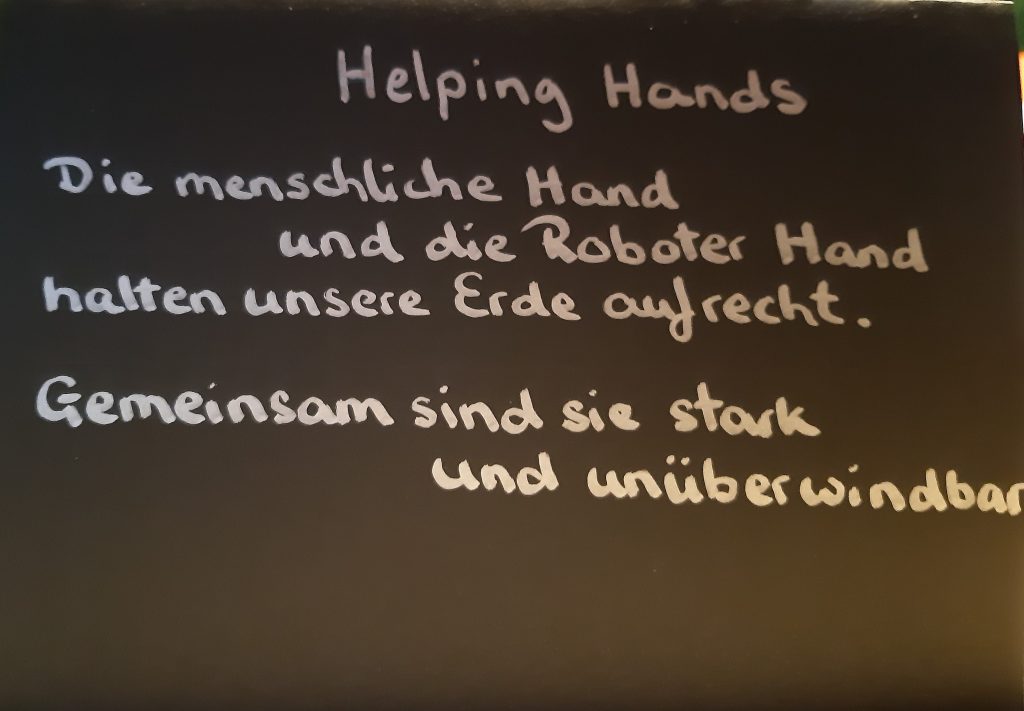 Helping Hands
Die menschliche Hand
und die Roboter Hand
halten unsere Erde aufrecht.
Gemeinsam sind sie stark
und unüberwindbar